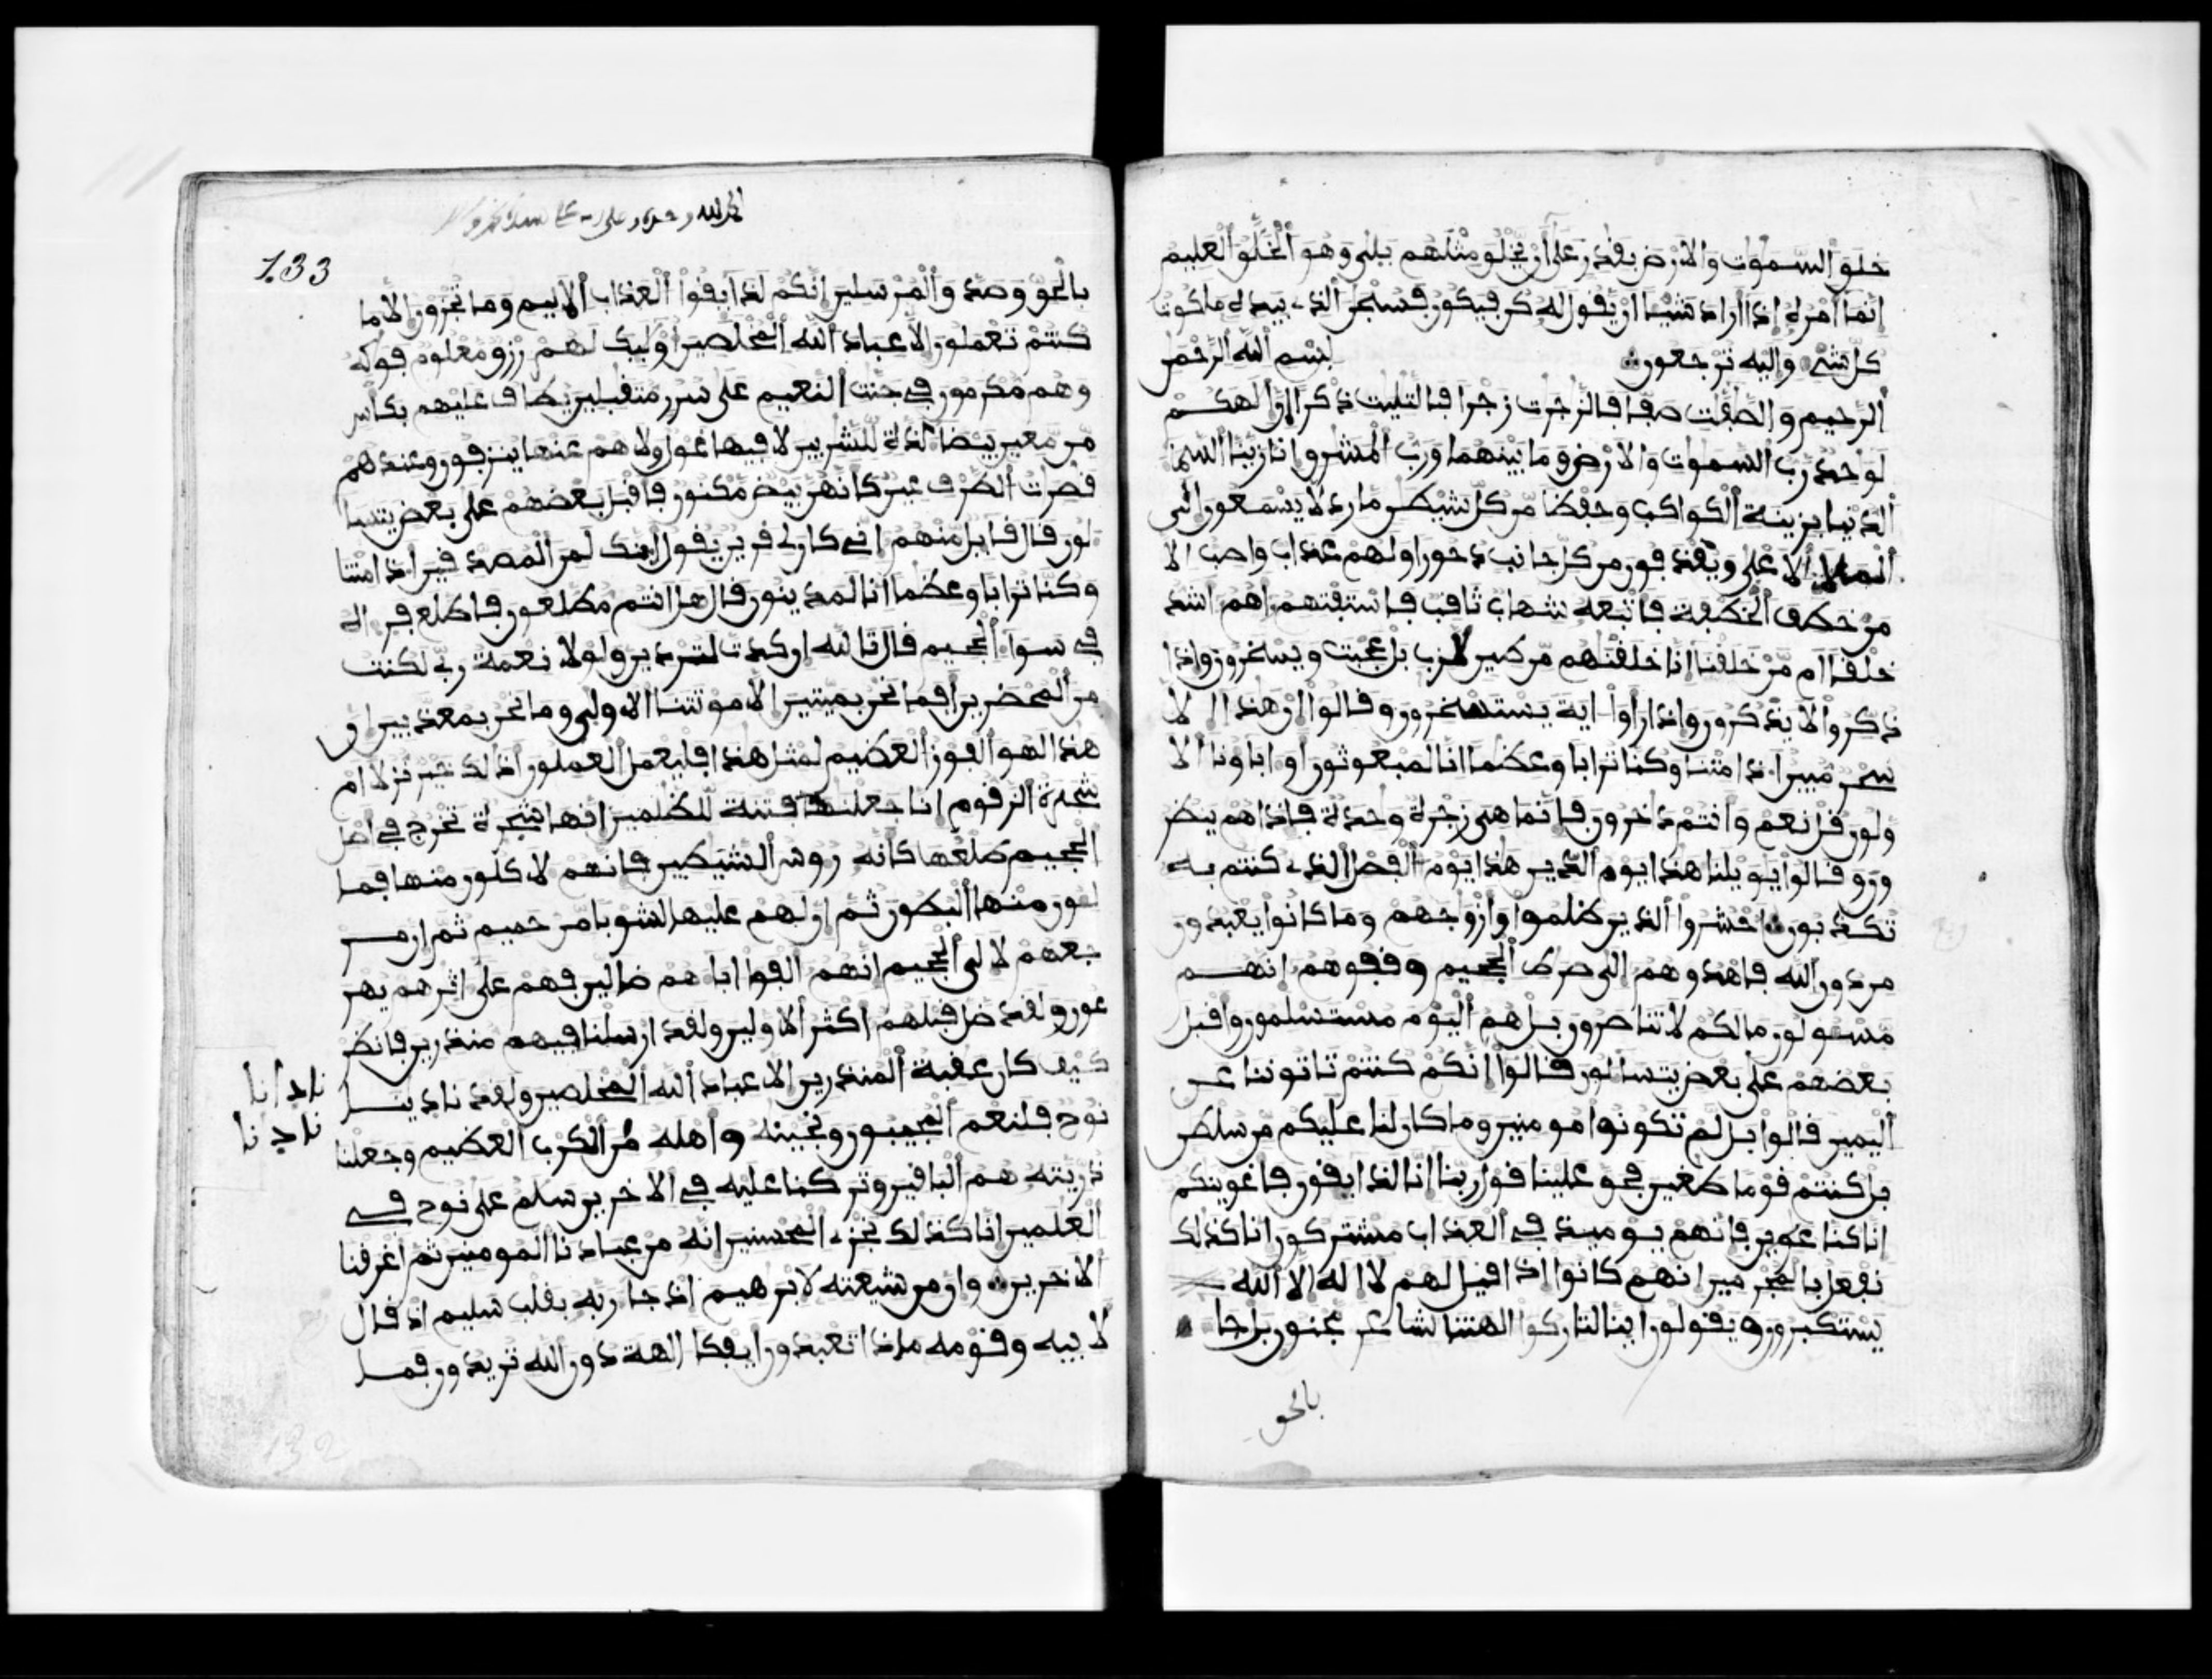 خلق السموت والارض بقدر على ان يخلق مثلهم بلى وهو الخلق العليم
انما امره اذا اراد شيا ان يقول له كن فيكون فسبحن الذي بيده ملكوت
كل شي واليه ترجعون بسم الله الرحمن
الرحيم والصفت صفا فالزجرت زجرا فالتليت ذكرا ان الهكم
لوحد رب السموت والارض وما بينهما ورب المشرق انا زينا السما
الدنيا بزينة الكواكب وحفظا من كل شيطن مارد لا يسمعون الى
الملا الاعلى ويقذفون من كل جانب دحورا ولهم عذاب واصب الا
من خطف الخطفة فاتبعه شهاب ثاقب فاستفتهم اهم اشد
خلقا ام من خلقنا انا خلقنهم من طين لازب بل عجبت ويسخرون واذا
ذكروا لا يذكرون واذا راوا اية يستسخرون وقالوا ان هذا الا
سحر مبين اذا متنا وكنا ترابا وعظما انا لمبعوثون او اباونا الا
ولون قل نعم وانتم داخرون فانما هي زجرة وحدة فاذا هم ينظر
ورو وقالوا يويلنا هذا يوم الدين هذا يوم الفصل الذي كنتم به
تكذبون احشروا الذين ظلموا وازوجهم وما كانوا يعبدون
من دون الله فاهدوهم الى صرط الجحيم وقفوهم انهم
مسولون ما لكم لا تناصرون بل هم اليوم مستسلمون واقبل
بعضهم على بعض يتسالون قالوا انكم كنتم تاتوننا عن
اليمين قالوا بل لم تكونوا مومنين وما كان لنا عليكم من سلطن
بل كنتم قوما طغين فحق علينا قول ربنا انا لذايقون فاغوينكم
انا كنا غوين فانهم يوميذ في العذاب مشتركون انا كذلك
نفعل بالمجرمين انهم كانوا اذا قيل لهم لا اله الا الله
يستكبرون ويقولون اينا لتاركوا الهتنا لشاعر مجنون بل جا
بالحق
الحمد لله وحده
133
بالحق وصدق المرسلين انكم لذايقوا العذاب الاليم وما تجزون الا ما
كنتم تعملون الا عباد الله المخلصين اوليك لهم رزق معلوم فوكه
وهم مكرمون في جنت النعيم على سرر متقبلين يطاف عليهم بكاس
من معين بيضا لذة للشربين لا فيها غول ولا هم عنها ينزفون وعندهم
قصرت الطرف عين كانهن بيض مكنون فاقبل بعضهم على بعض يتسا
لون قال قايل منهم اني كان لي قرين يقول اينك لمن المصدقين اذا متنا
وكنا ترابا وعظما انا لمدينون قال هل انتم مطلعون فاطلع فراه
في سوا الجحيم قال تالله ان كدت لتردين ولولا نعمة ربي لكنت
من المحضرين افما نحن بميتين الا موتتنا الاولى وما نحن بمعذبين ان
هذا لهو الفوز العظيم لمثل هذا فليعمل العملون اذلك خير نزلا ام
شجرة الزقوم انا جعلنها فتنة للظلمين انها شجرة تخرج في اصل
الجحيم طلعها كانه روس الشيطين فانهم لاكلون منها فما
لون منها البطون ثم ان لهم عليها لشوبا من حميم ثم ان مر
جعهم لالى الجحيم انهم الفوا اباهم ضالين فهم على اثرهم يهر
عون ولقد ضل قبلهم اكثر الاولين ولقد ارسلنا فيهم منذرين فانظر
كيف كان عقبة المنذرين الا عباد الله المخلصين ولقد نادينا
نوح فلنعم المجيبون ونجينه واهله من الكرب العظيم وجعلنا
ذريته هم الباقين وتركنا عليه في الاخرين سلم على نوح في
العلمين انا كذلك نجزي المحسنين انه من عبادنا المومنين ثم اغرقنا
الاخرين وان من شيعته لابرهيم اذ جا ربه بقلب سليم اذ قال
لابيه وقومه ماذا تعبدون ايفكا الهة دون الله تريدون فما
نادانا
نادنا
132